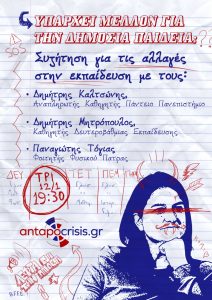 ΥΠΑΡΧΕΙ ΜΕΛΛΟΝ ΓΙΑ
ΤΗΝ ΔΗΜΟΣΙΑ ΠΑΙΔΕΙΑ;
Συζήτηση για τις αλλαγές
στην εκπαίδευση με τους:
• Δημήτρης Καλτσώνης,
Αναπληρωτής Καθηγητής Πάντειο Πανεπιστήμιο
• Δημήτρης Μητρόπουλος,
Καθηγητής Δευτεροβάθμιας Εκπαίδευσης
• Παναγιώτης Τόγιας
Φοιτητής Φυσικού Πατρας
ΔΕΥ ΤΕΤ ΠΕΜ
ΤΡΙ
12/1
19:30
antapocrisis.gr